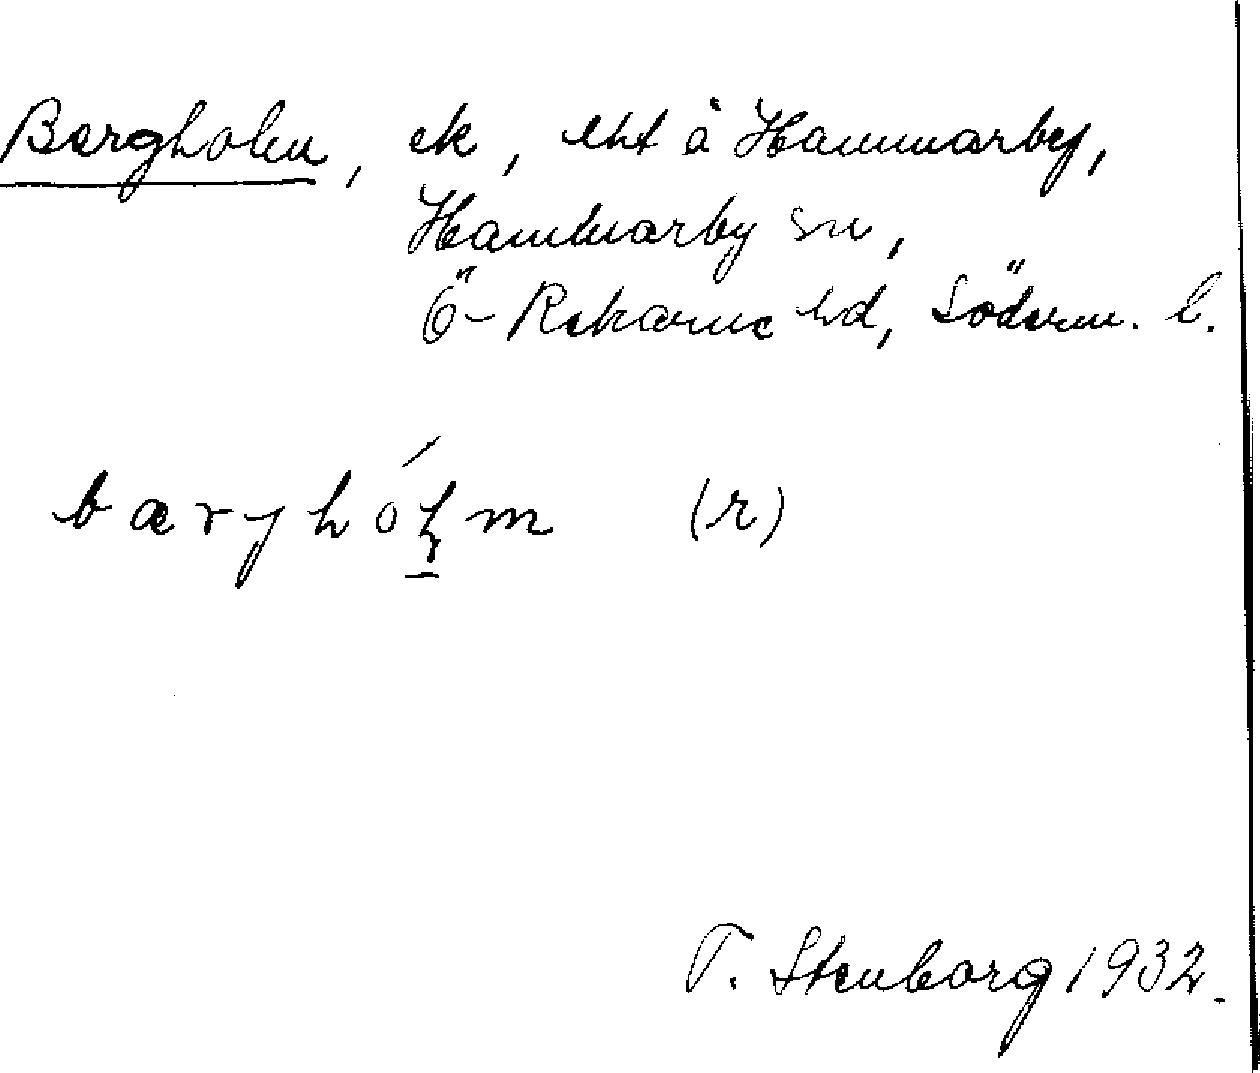 Bergholm, ek, lht å Hammarby,
Hammarby sn,
Ö-Rekarne hd, Söderm. l.
bæryhólm (r)
T. Stenborg 1932.